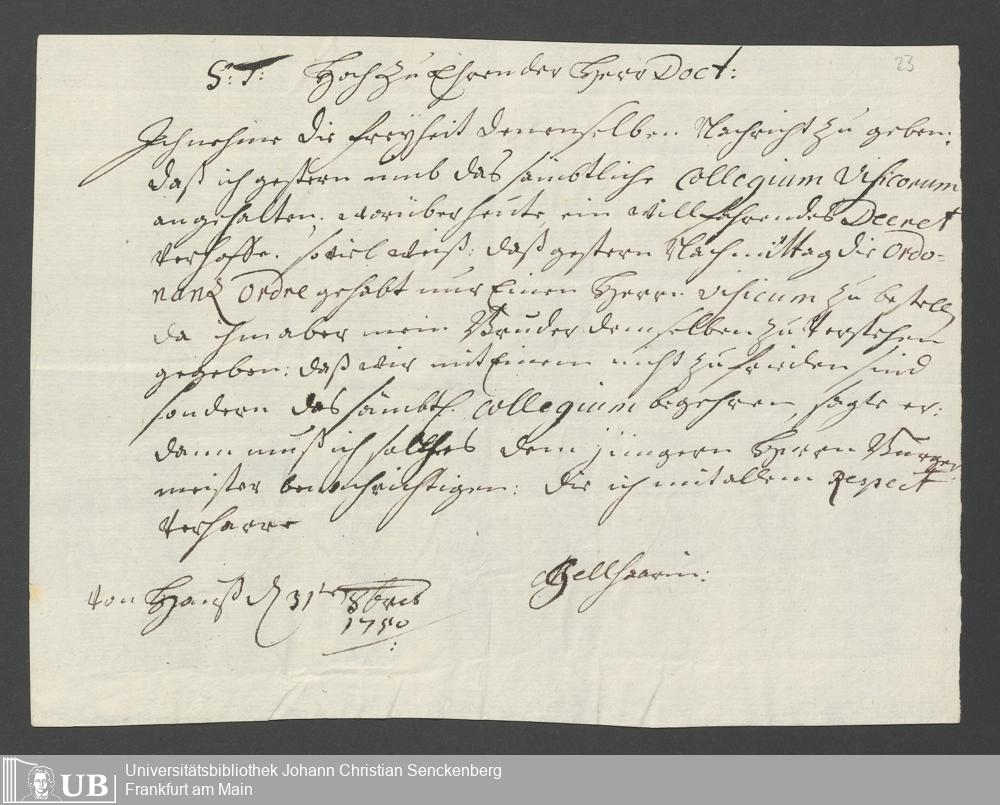 23
S: T: Hoch zu Ehrender Herr Doct:
Ich nehme die freyheit denenselben Nachricht zu geben:
daß ich gestern umb das sämbtliche Collegium Visicorum
angehalten. worüber heute ein willfahrendes Decret
verhoffe. so viel weiß: daß gestern Nachmittag die Ordo-
nanz Ordre gehabt nur Einen Herrn Visicum zu bestelln
da ihm aber mein Bruder demselben zu verstehen
gegeben: daß wir mit Einem nicht zufrieden sind
sondern das sämbtl. Collegium begehren, sagte er:
dann muß ich solches dem jüngern Herrn Burger
meister benachrichtigen: die ich mit allem Respect
verharre
von Hauß d 31te 8bris
1750
Universitätsbibliothek Johann Christian Senckenberg
Frankfurt am Main
UB